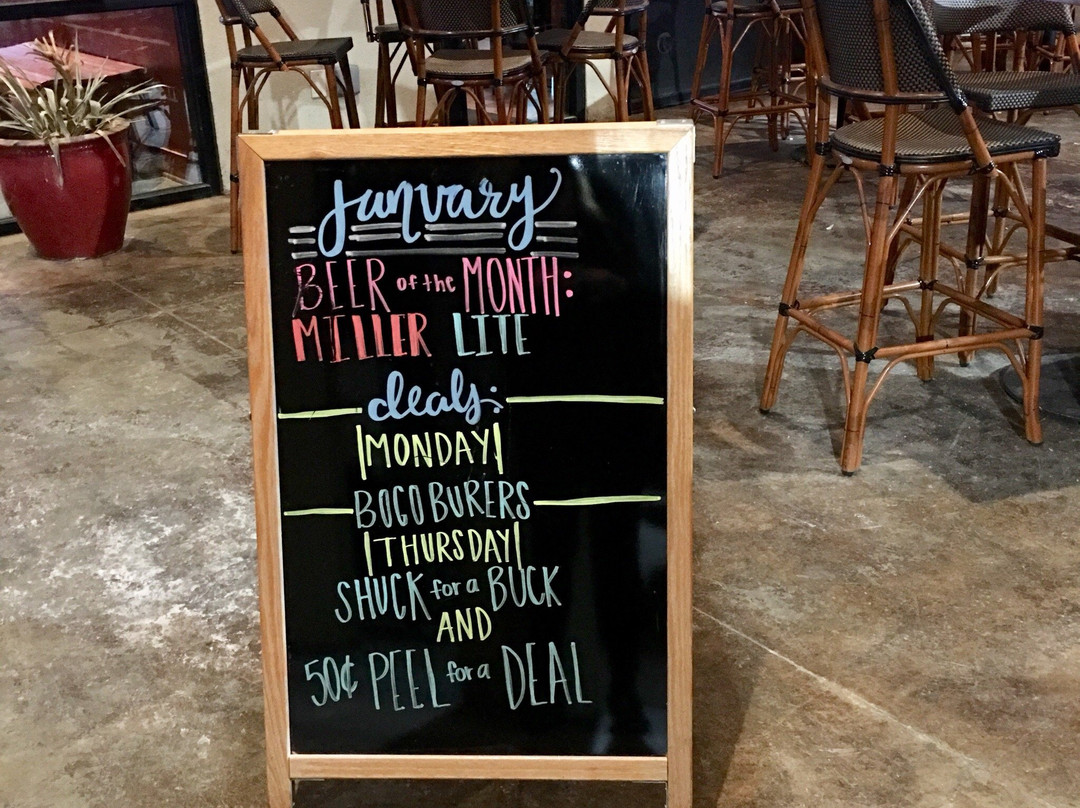 January
BEER of the MONTH:
MILLER LITE
deals:
MONDAY
BOGO BURERS
THURSDAY
SHUCK for a BUCK
AND
50¢ PEEL for a DEAL